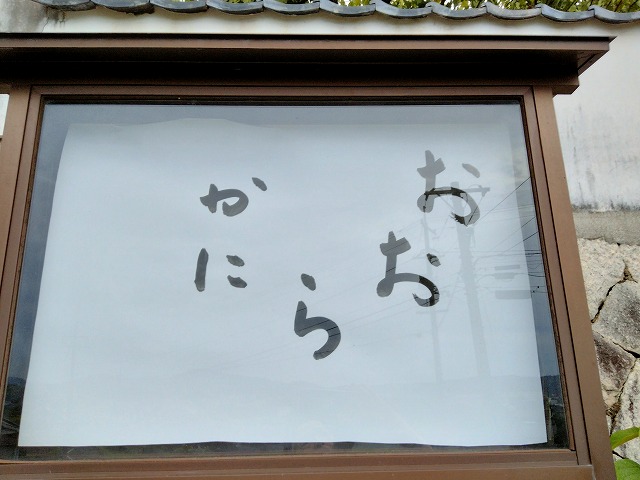 おおら
かに